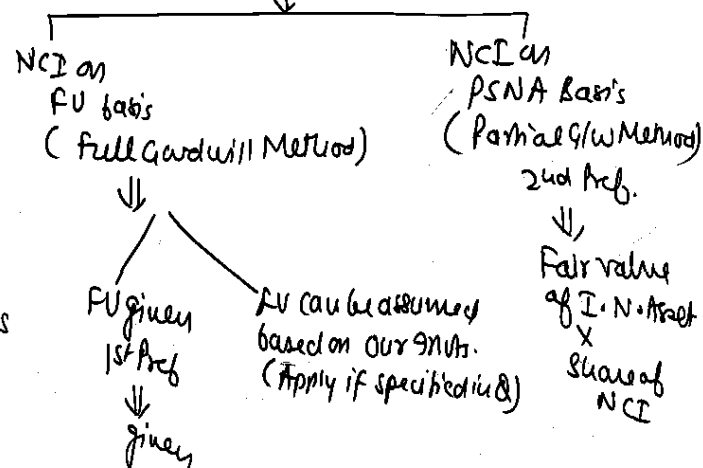 NCI on
FV basis
(Full Goodwill Method)
FV given
1st Pref
given
FV can be assumed
based on our Invts.
(Apply if specified in Q)
NCI on
PSNA Basis
(Partial G/W Method)
2nd Pref.
Fair value
of I.N.Asset
×
Share of
NCI
s